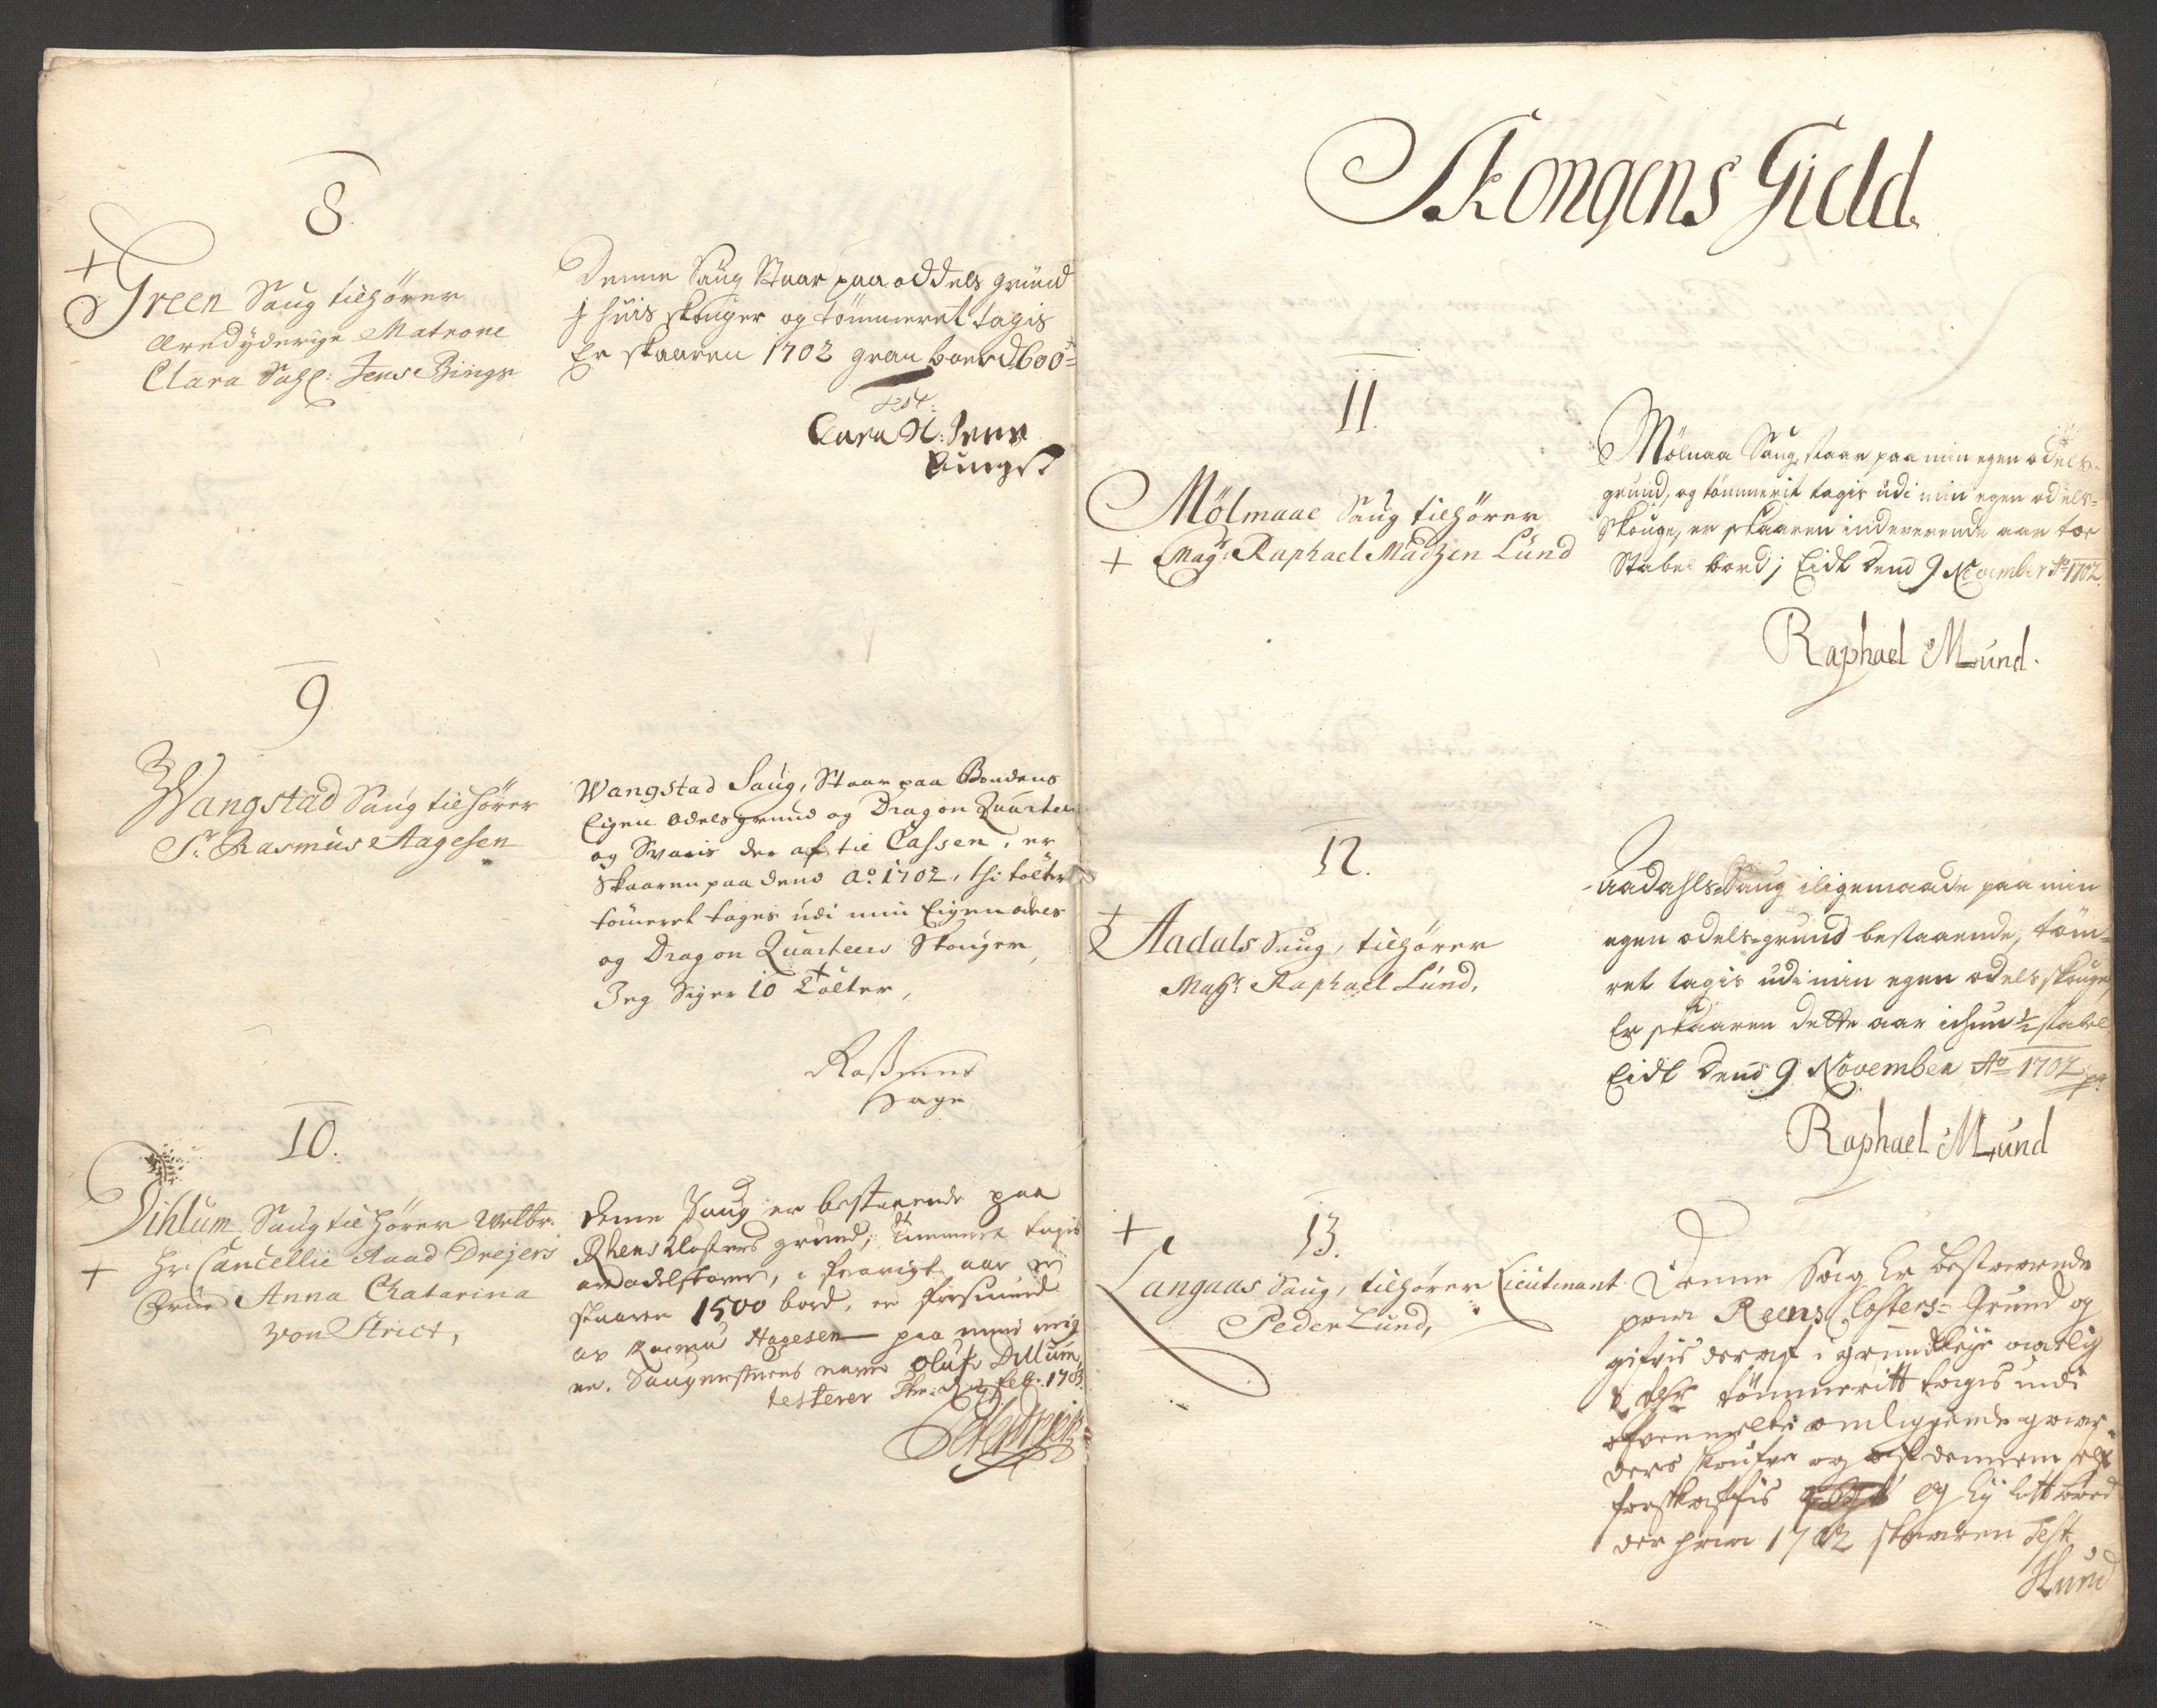 8
+
Green Saug tilhörer
Æredÿderige Matrone
Clara Sahl: Jens Bings
Denne Saug Staar paa oddels grund
j huis skouger og tömmeret tagis
Er skaaren 1702 gran bord 600
Test:
Clara Sl: Jens
Bings
9
Wangstad Saug tilhörer
Sr. Rasmus Aagesen
Wangstad Saug, Staar paa Bondens
Eigen odels grund og Dragon Quarteer
og Svaris der af til Cassen, er
Skaaren paa dend Ao. 1702, thi tölter
tömeret tages udi min Eigen odels
og Dragon Quarteers Skouger,
Jeg Siger 10 Tölter,
Rasmus
Hage
10.
Dihlum Saug tilhörer Welbr.
+ Hr. Cancellie Raad Drejers
Frue Anna Chatarina
von Strict,
Denne Saug er bestaaende paa
Rhens Klosters grund, Timmeret tagis
av adelskoven, i forrigt aar er
skaaren 1500 bord, er forsuend
av Rasmus Aagesen paa
Saugmesterens navn Oluf Dillum,
testerer
Feb. 1703.
Skongens Gield.
11.
Mölmaae Saug tilhörer
+ Magr: Raphael Madzen Lund
Mölnaa Saug, staar paa min egen odels-
grund, og tömmerit tagis udi min egen odels-
Skouge, er skaaren indeverende aar toe
Stabel bord; Eidt dend 9 November Ao 1702.
Raphael M Lund.
12.
+
Aadals Saug, tilhörer
Magr: Raphael Lund,
Aadahls Saug iligemaade paa min
egen odels-grund bestaaende, töm-
ret tagis udi min egen odels skouge,
Er skaaren dette aar ichun 1/2 stabel
Eidt dend 9 November Ao 1702
Raphael M Lund
+
13.
Langaas Saug, tilhörer Lieutinant
Peder Lund,
Denne Sag Er bestaaende
paa Reens Closters-Grund og
gifvis deraf i grundleje aarlig
tömmeritt tagis udi
ofvenmelte omliggende gaar-
ders skoufve og af dennem self
forskaffis og Ey lott bord
der paa 1702 skaaren Test
PLund